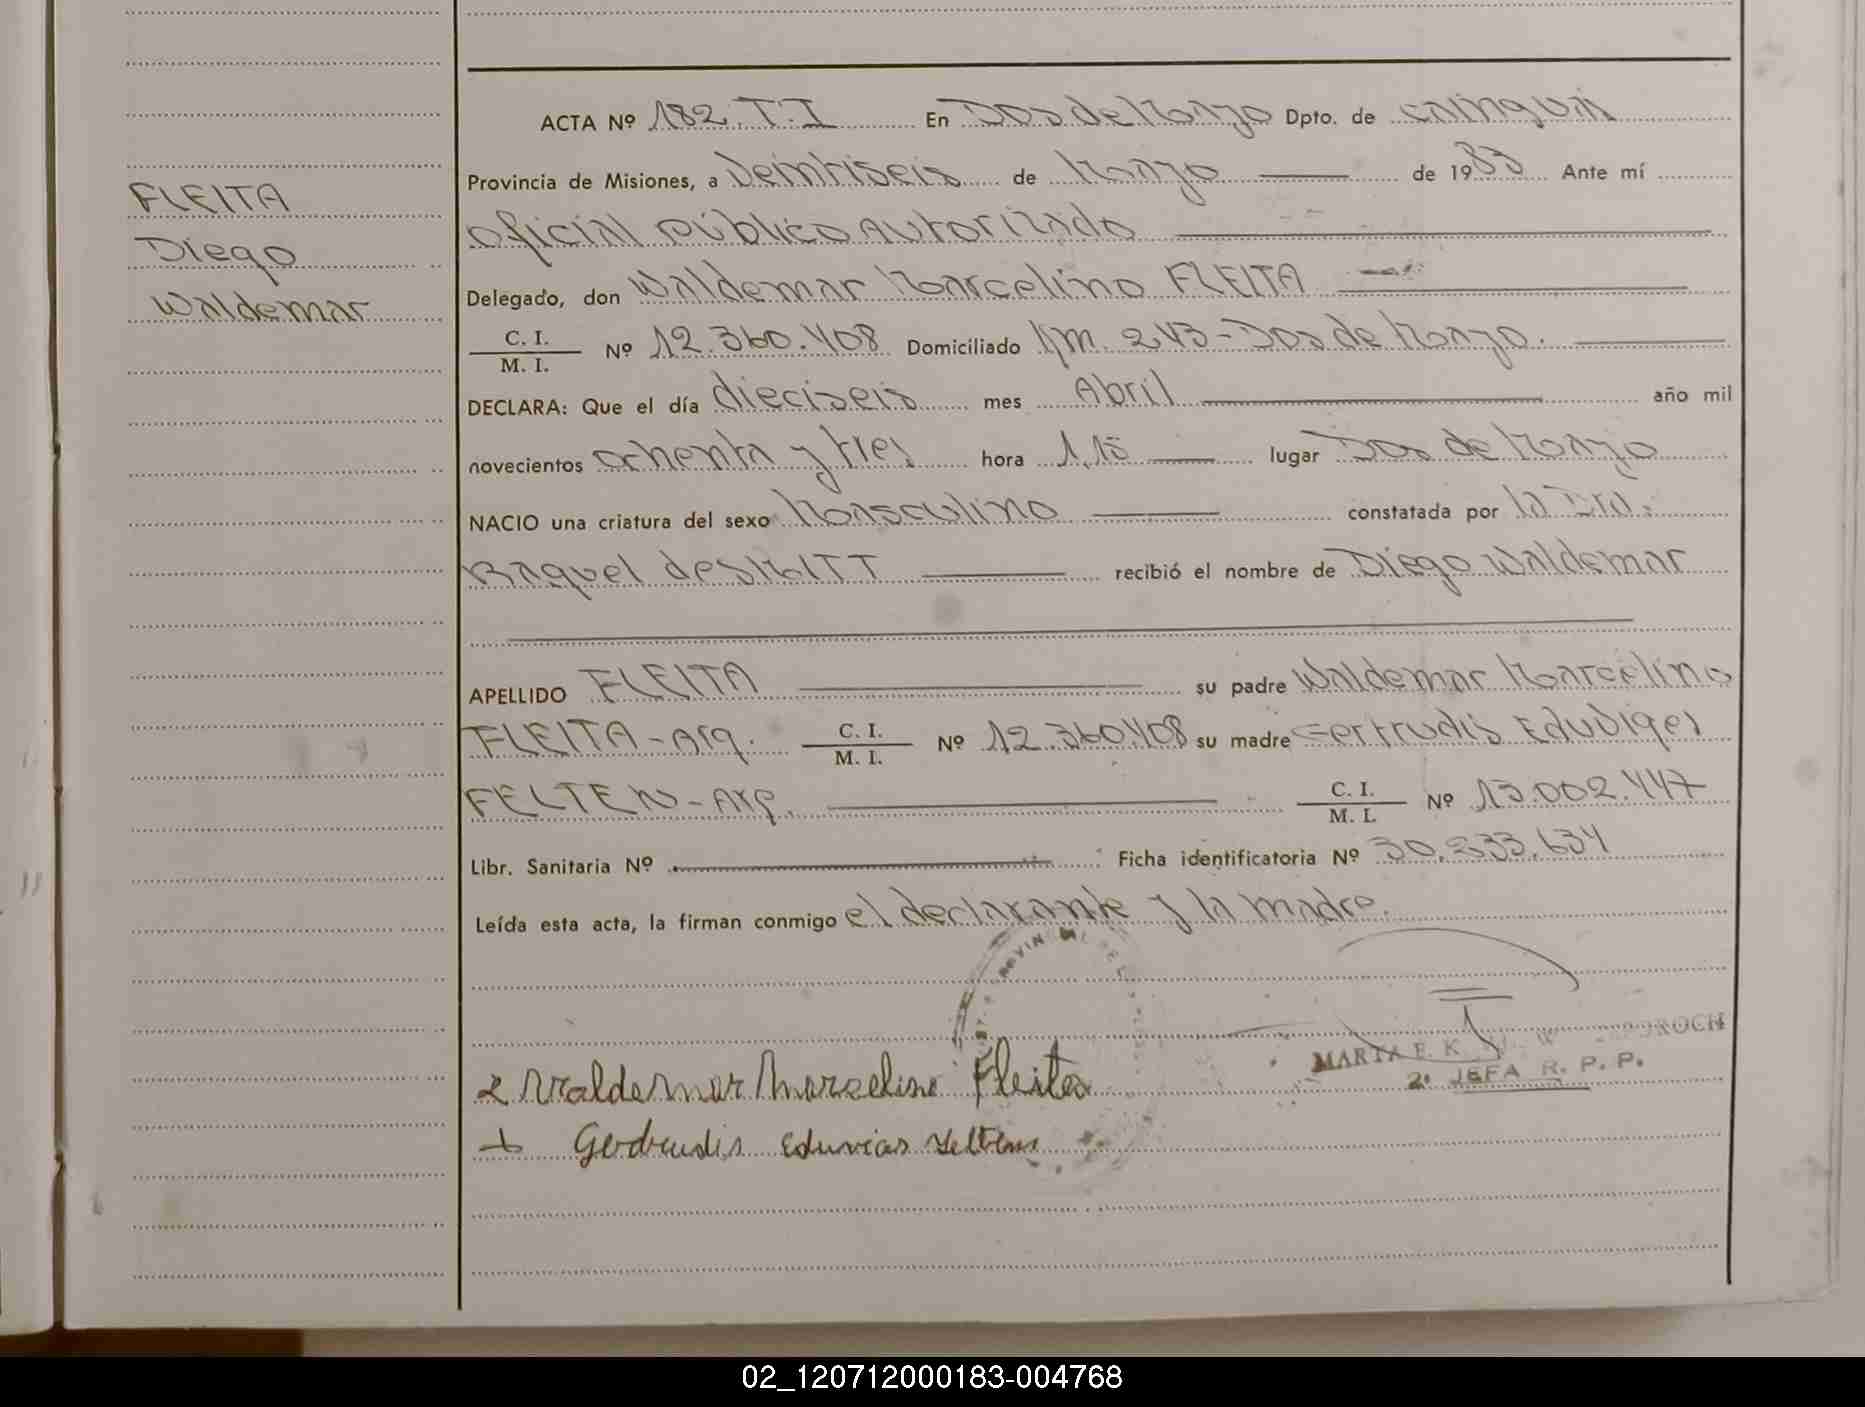 ACTA Nº 182.T.I En Dos de Marzo Dpto. de Cainguás
Provincia de Misiones, a Veintiseis de Marzo de 1983 Ante mí
Oficial Público Autorizado
FLEITA
Diego
Waldemar
Delegado, don Waldemar Marcelino FLEITA
C. I.
M. I.
Nº 12.360.408 Domiciliado Km. 243-Dos de Marzo.
DECLARA: Que el día dieciseis mes Abril año mil
novecientos ochenta y tres hora 1,15 lugar Dos de Marzo
NACIO una criatura del sexo Masculino constatada por la Dra.
Raquel recibió el nombre de Diego Waldemar
APELLIDO FLEITA su padre Waldemar Marcelino
FLEITA-Arg. C. I.
M. I. Nº 12.360.408 su madre Gertrudis Edubiges
FELTEN-Arg. C. I.
M. I. Nº 13.002.447
Libr. Sanitaria Nº Ficha identificatoria Nº 30.233.634
Leída esta acta, la firman conmigo el declarante y la madre.
Waldemar Marcelino Fleita
MARTA E. K.
2º JEFA R. P. P.
Gertrudis Eduvias Feltens
02_120712000183-004768